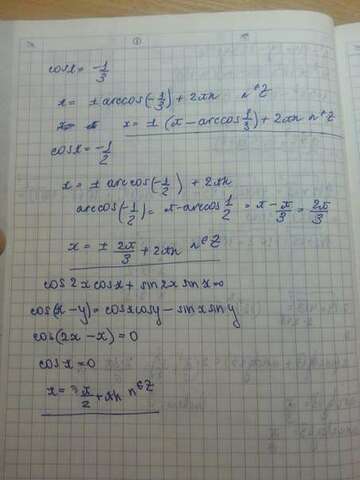 ①
cosx = -1/3
x = ± arccos(-1/3) + 2πn n∈Z
x = ± (π - arccos 1/3) + 2πn n∈Z
cosx = -1/2
x = ± arccos(-1/2) + 2πn
arccos(-1/2) = π - arccos 1/2 = π - π/3 = 2π/3
x = ± 2π/3 + 2πn n∈Z
cos2x cosx + sin2x sinx = 0
cos(x-y) = cosx cosy - sinx siny
cos(2x - x) = 0
cosx = 0
x = π/2 + πn n∈Z